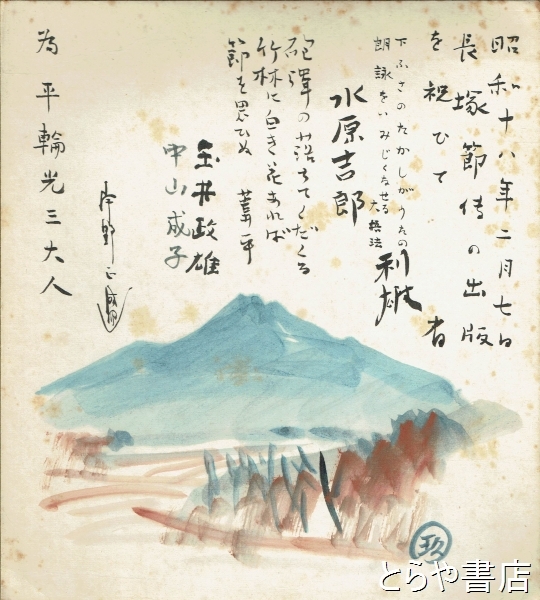 昭和十八年二月七日
長塚節傳の出版
を祝ひて
下ふさのたかしがうたの
朗詠をいみじくなせる
利雄
水原吉郎
砲弾の落ちてくだくる
竹林に白き花あれば
節を思ひぬ 葦平
玉井政雄
中山成子
為 平輪光三大人
玖
とらや書店